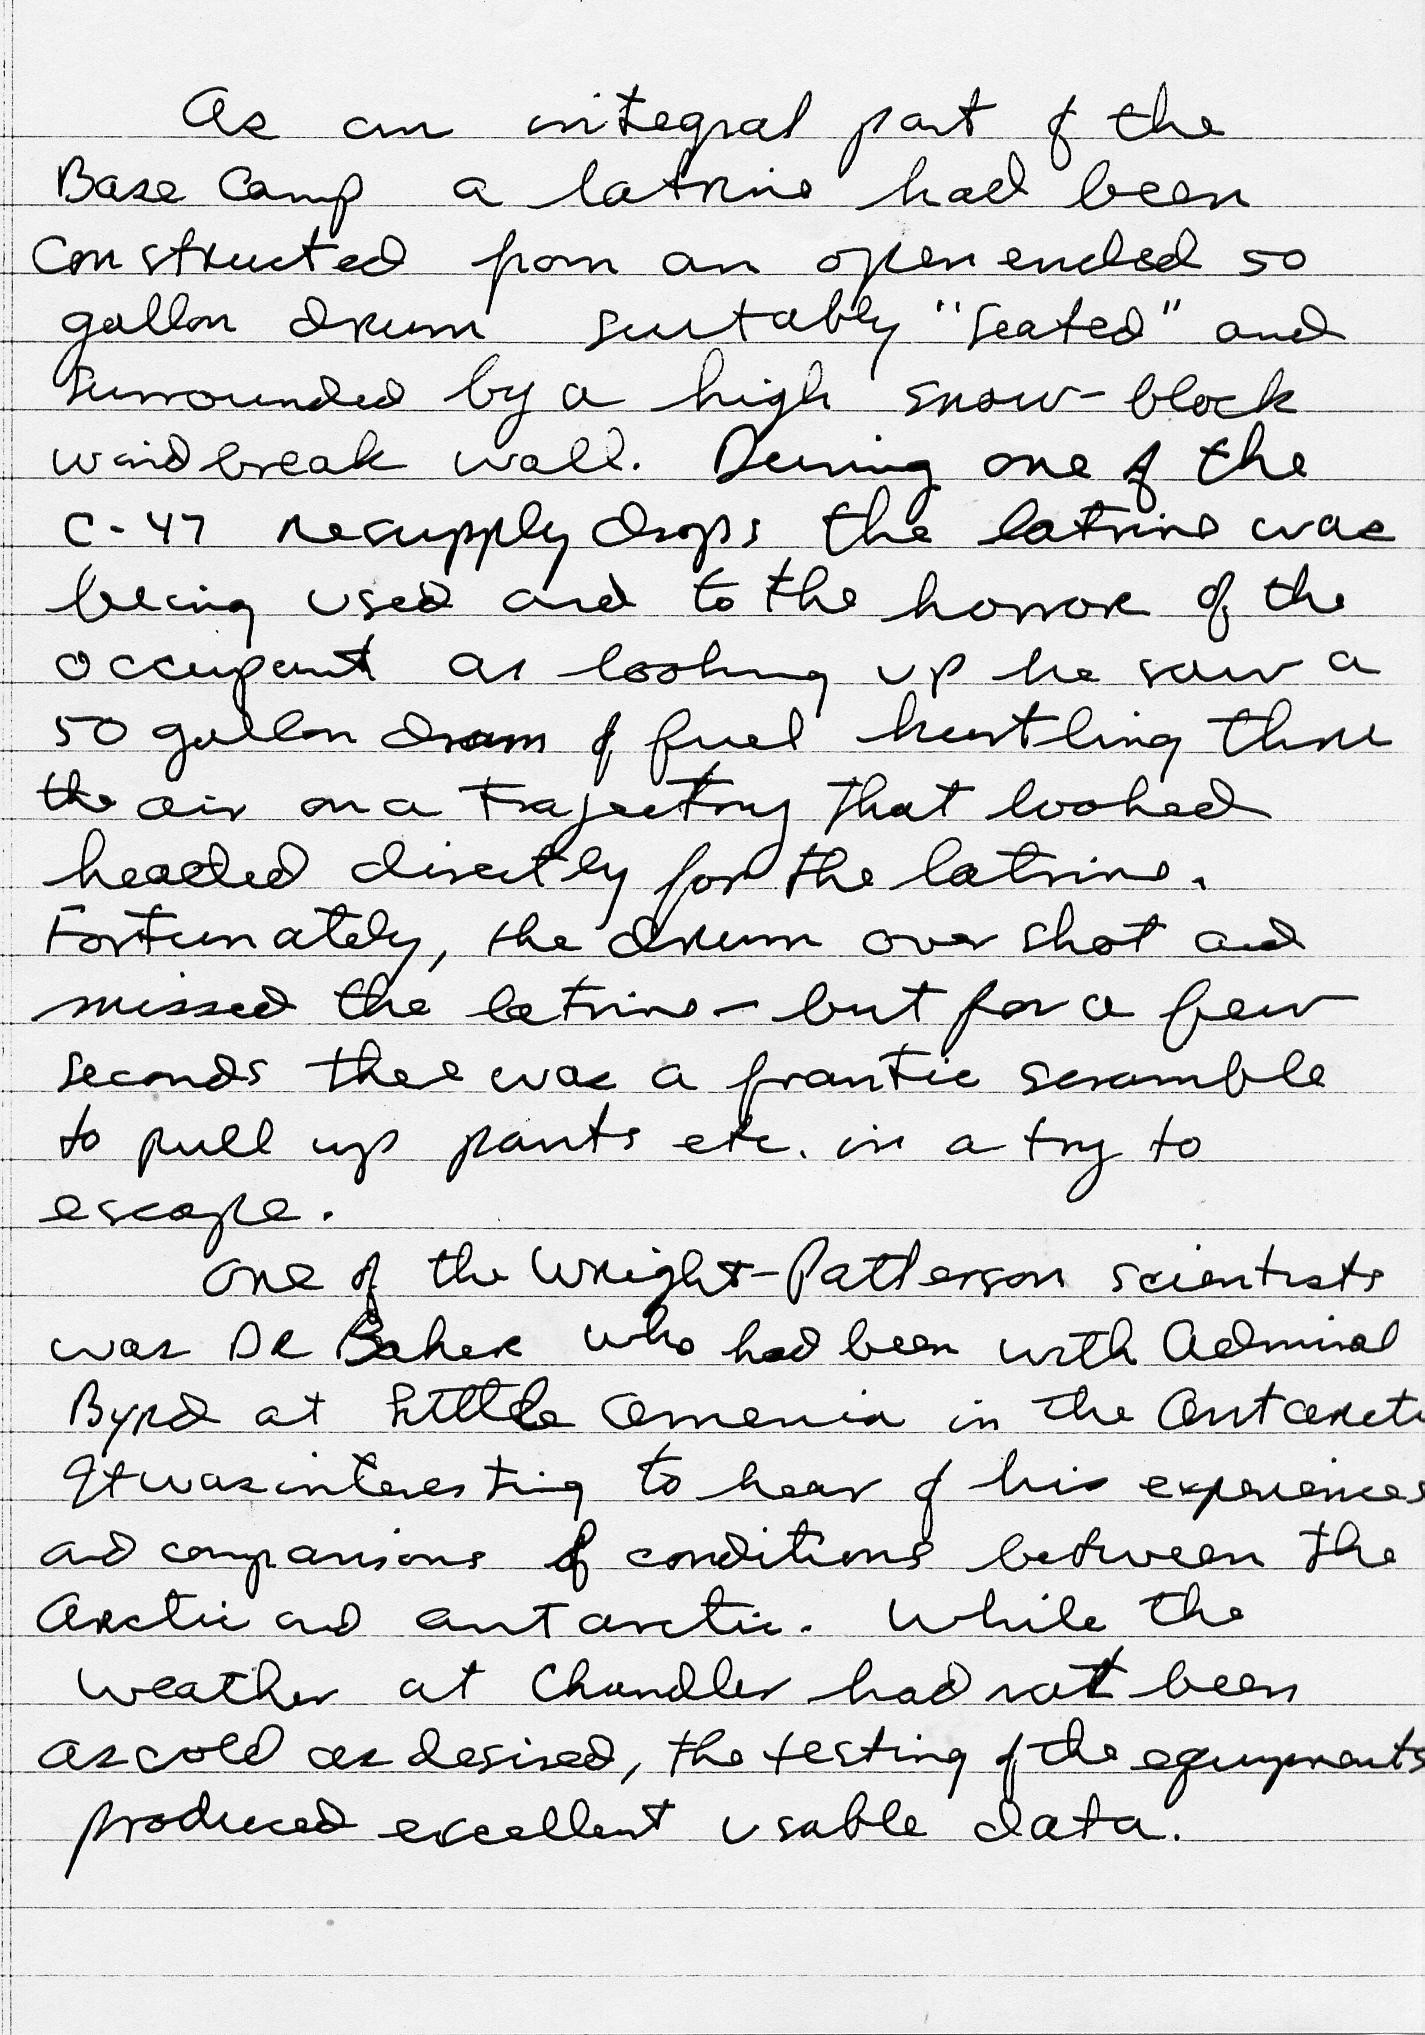 As an integral part of the
Base Camp a latrine had been
constructed from an open ended 50
gallon drum suitably "seated" and
surrounded by a high snow-block
windbreak wall. During one of the
C-47 resupply drops the latrine was
being used and to the horror of the
occupant as looking up he saw a
50 gallon drum of fuel hurtling thru
the air on a trajectory that looked
headed directly for the latrine.
Fortunately, the drum over shot and
missed the latrine - but for a few
seconds there was a frantic scramble
to pull up pants etc. in a try to
escape.
One of the Wright-Patterson scientists
was DR Baker who had been with Admiral
Byrd at Little America in the Antarcti
It was interesting to hear of his experiences
and comparisons of conditions between the
Arctic and antarctic. While the
weather at Chandler had not been
as cold as desired, the testing of the equipments
produced excellent usable data.